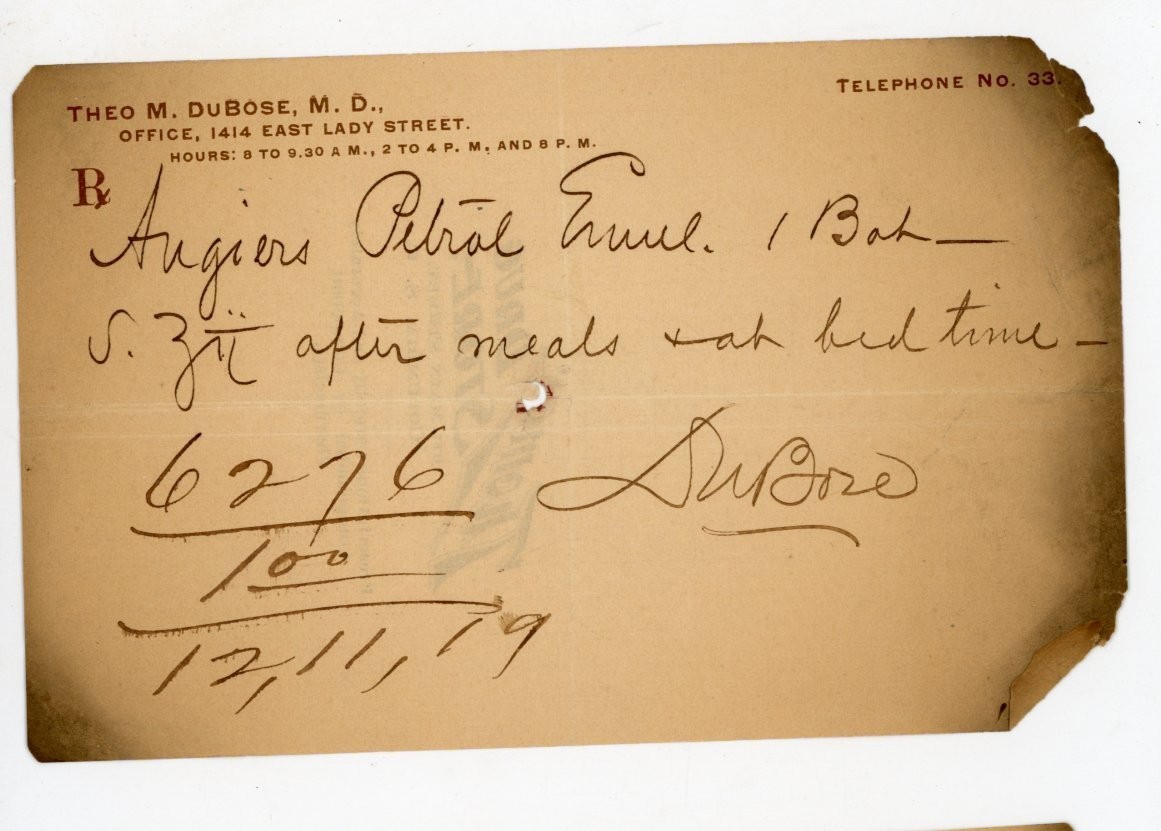 THEO M. DUBOSE, M. D.,
OFFICE, 1414 EAST LADY STREET.
HOURS: 8 TO 9.30 A M., 2 TO 4 P. M. AND 8 P. M.
TELEPHONE NO. 33.
℞
Angiers Petrol Emul. 1 Bot—
S. ʒii after meals & at bed time –
6276
DuBose
1 00
12, 11, 19